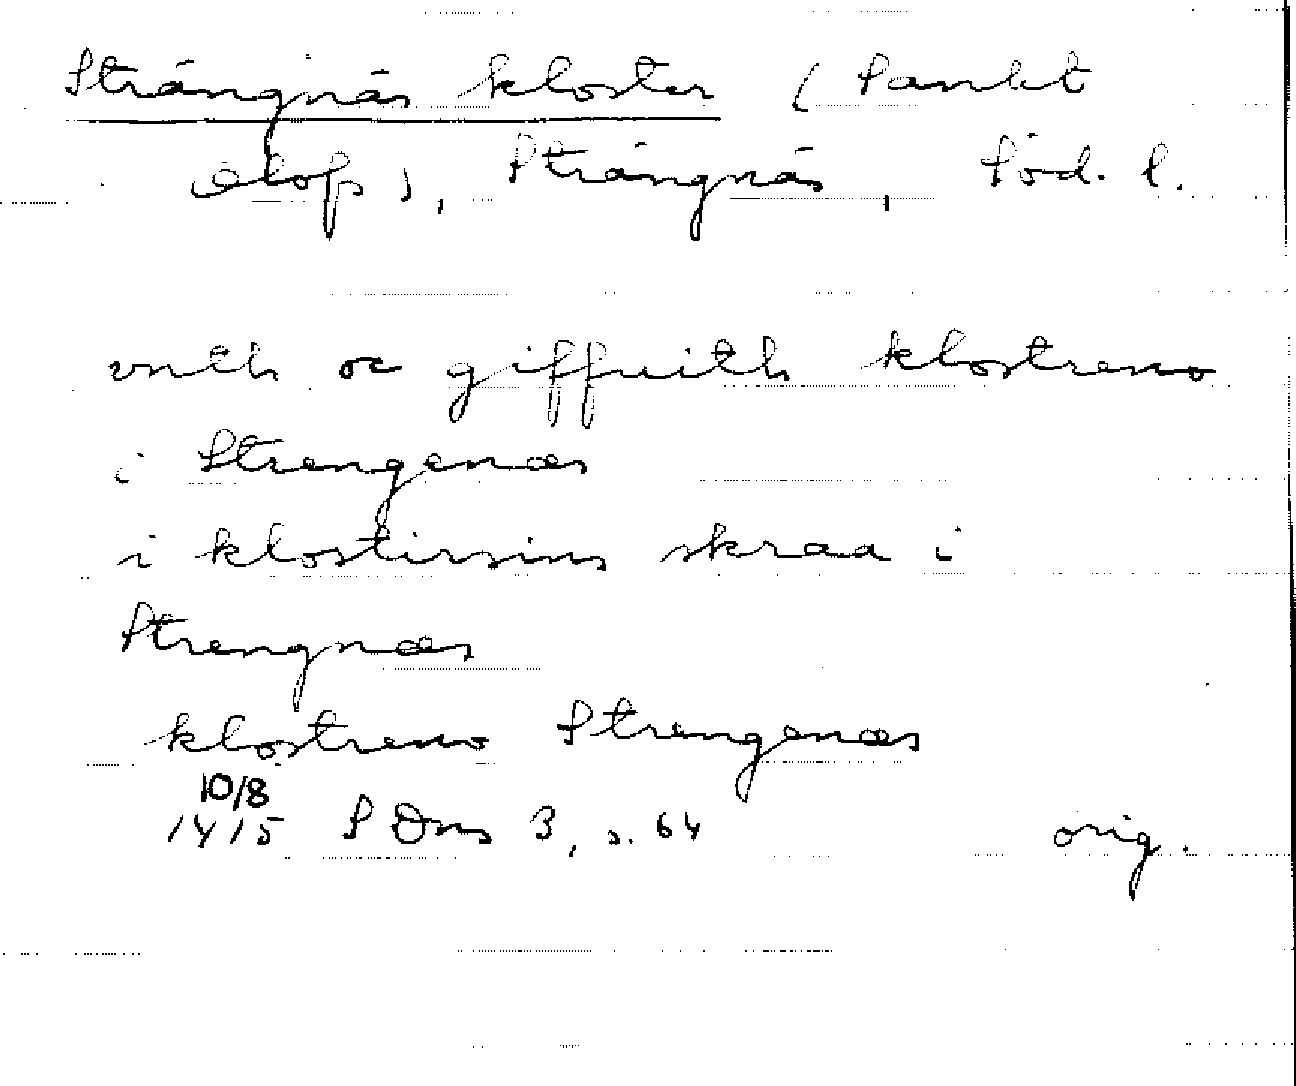 Strängnäs kloster (Sankt
Olof), Strängnäs, Söd. l.
vnth oc giffuith klostreno
i Strengenæs
i klostirsins skraa i
Strengnæs
klostreno Strengenæs
10/8
1415 SDns 3, s. 64 orig.